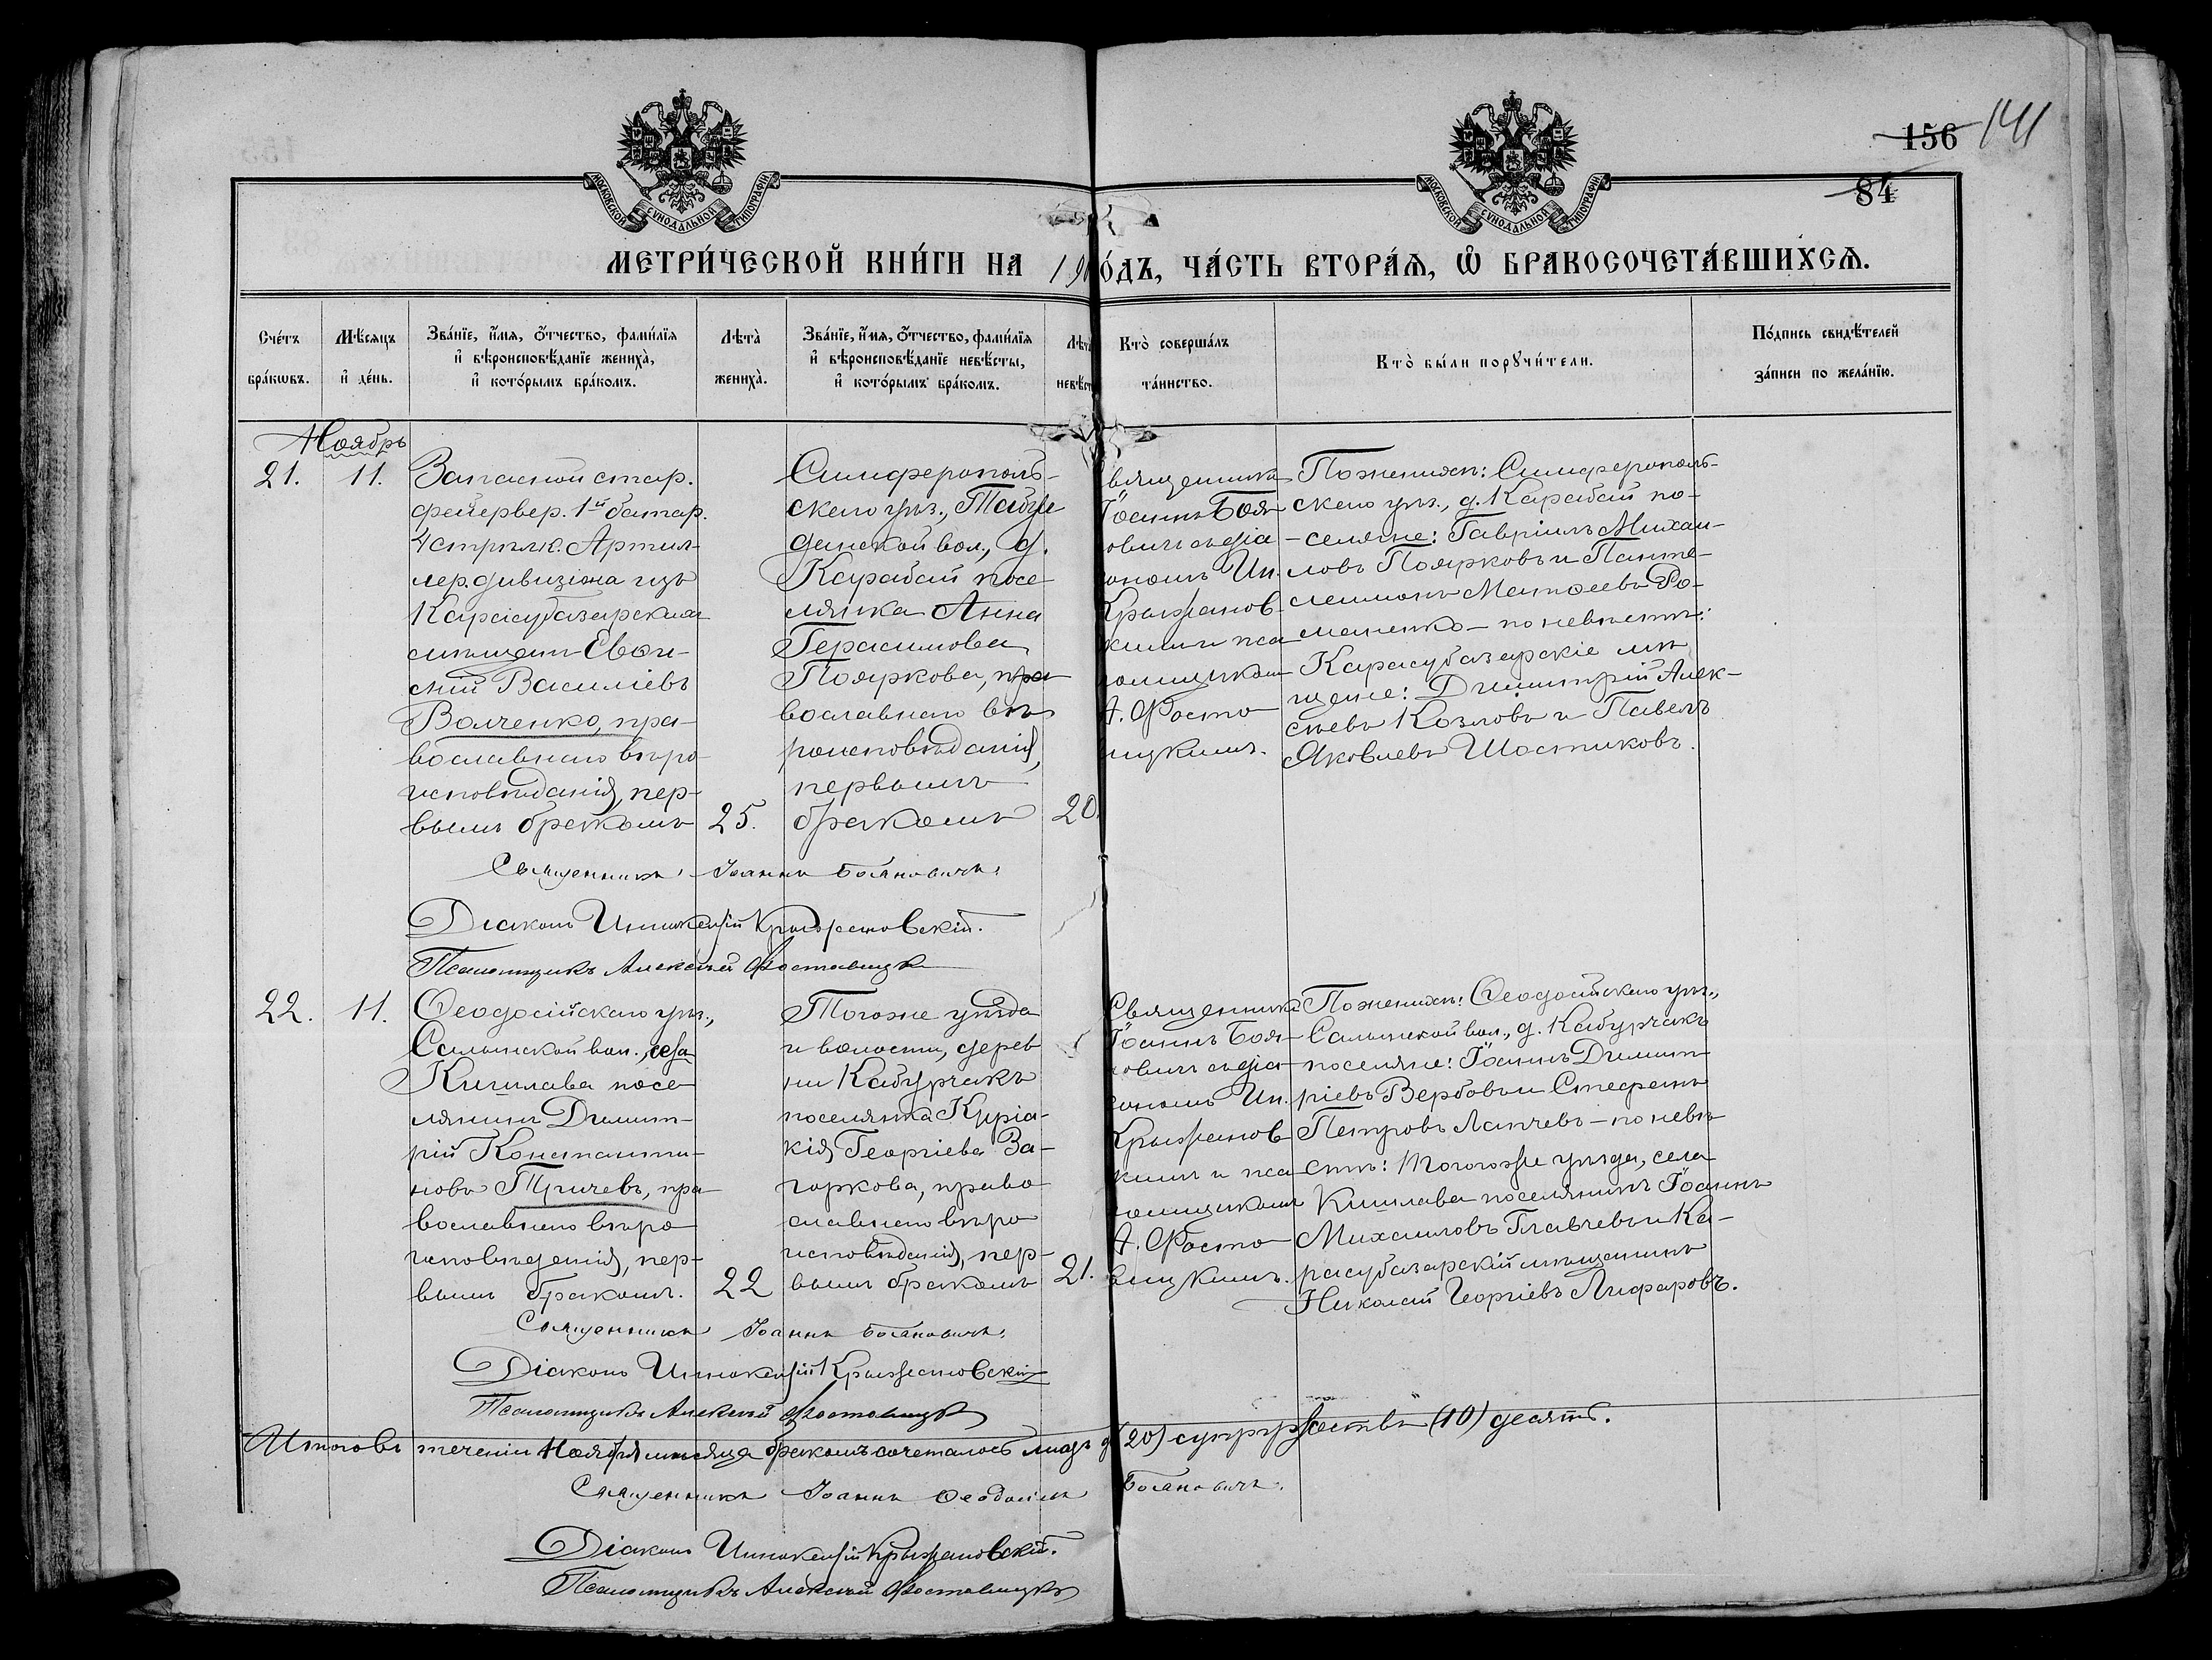 156 141
84
МОСКОВСКОЙ СѴНОДАЛЬНОЙ ТИПОГРАФІИ
МОСКОВСКОЙ СѴНОДАЛЬНОЙ ТИПОГРАФІИ
МЕТРИ́ЧЕСКОЙ КНИ́ГИ НА 190 О́ДЪ, ЧА́СТЬ ВТОРА́Ѧ, Ѡ БРАКОСОЧЕТА́ВШИХСѦ.
Сче́тъ бра́кωвъ.
Мѣ́сяцъ и҆ де́нь.
Зва́нїе, и҆́мя, ѻ҆́тчество, фами́лїя и҆ вѣроисповѣ́данїе жениха̀, и҆ кото́рымъ бра́комъ.
Лѣта̀ жениха̀.
Зва́нїе, и҆́мя, ѻ҆́тчество, фами́лїя и҆ вѣроисповѣ́данїе невѣ́сты, и҆ кото́рымъ бра́комъ.
Лѣта̀ невѣ́ст
Кто̀ соверша́лъ та́инство.
Кто̀ бы́ли порꙋчи́тели.
По́дпись свидѣ́телей за́писи по жела́нїю.
Ноябрь
21.
11.
Запасной стар.
фейервер. 1й батар.
4 стрѣлк. Артил-
лер. дивизіона изъ
Карасубазарскихъ
мѣщанъ Евги-
сній Василіевъ
Волченко, пра-
вославнаго вѣро-
исповѣданія, пер-
вымъ бракомъ
25.
Симферополь-
скаго уѣз., Табул
динской вол., д.
Карабай посе-
лянка Анна
Герасимова
Пояркова, пра-
вославнаго вѣ-
роисповѣданія,
первымъ
бракомъ
20.
вященникъ
Іоаннъ Боя-
овичъ съ діа-
кономъ Ин.
Крыжанов-
кимъ и пса-
омщикомъ
А. Фосто-
ицкимъ.
По женихѣ: Симферополь-
скаго уѣз., д. Карабай по-
селяне: Гавріилъ Михаи-
ловъ Поярковъ и Панте-
леимонъ Матѳеевъ Ро-
маненко — по невѣстѣ:
Карасубазарскіе мѣ-
щане: Димитрій Алек-
сѣевъ Козловъ и Павелъ
Яковлевъ Шостиковъ.
Священникъ Іоаннъ Бояновичъ.
Діаконъ Иннокентій Крыжановскій.
Псаломщикъ Алексѣй Фостовицкій
22.
11.
Ѳеодосійскаго уѣз.,
Салынской вол., села
Кишлава посе-
лянинъ Димит-
рій Константи-
новъ Тричевъ, пра-
вославнаго вѣро-
исповѣданія, пер-
вымъ бракомъ.
22
Того же уѣзда
и волости, дерев-
ни Кабурчакъ
поселянка Киріа-
кія Георгіева За-
горкова, право-
славнаго вѣро-
исповѣданія, пер-
вымъ бракомъ
21.
Священникъ
Іоаннъ Боя-
новичъ съ діа-
кономъ Ин.
Крыжанов-
кимъ и пса-
омщикомъ
А. Фосто-
вицкимъ.
По женихѣ: Ѳеодосійскаго уѣз.,
Салынской вол., д. Кабурчакъ
поселяне: Іоаннъ Димит-
ріевъ Вербовъ и Стефанъ
Петровъ Лапчевъ — по невѣ-
стѣ: того же уѣзда, села
Кишлава поселянинъ Іоаннъ
Михаиловъ Главчевъ и Ка-
расубазарскій мѣщанинъ
Николай Георгіевъ Лифаровъ.
Священникъ Іоаннъ Бояновичъ.
Діаконъ Иннокентій Крыжановскій
Псаломщикъ Алексѣй Фостовицкій
Итого въ теченіи Ноября мѣсяца бракомъ сочеталось лицъ д (20) супружества (10) десять.
Священникъ Іоаннъ Ѳеодосіевъ Бояновичъ.
Діаконъ Иннокентій Крыжановскій.
Псаломщикъ Алексѣй Фостовицкій